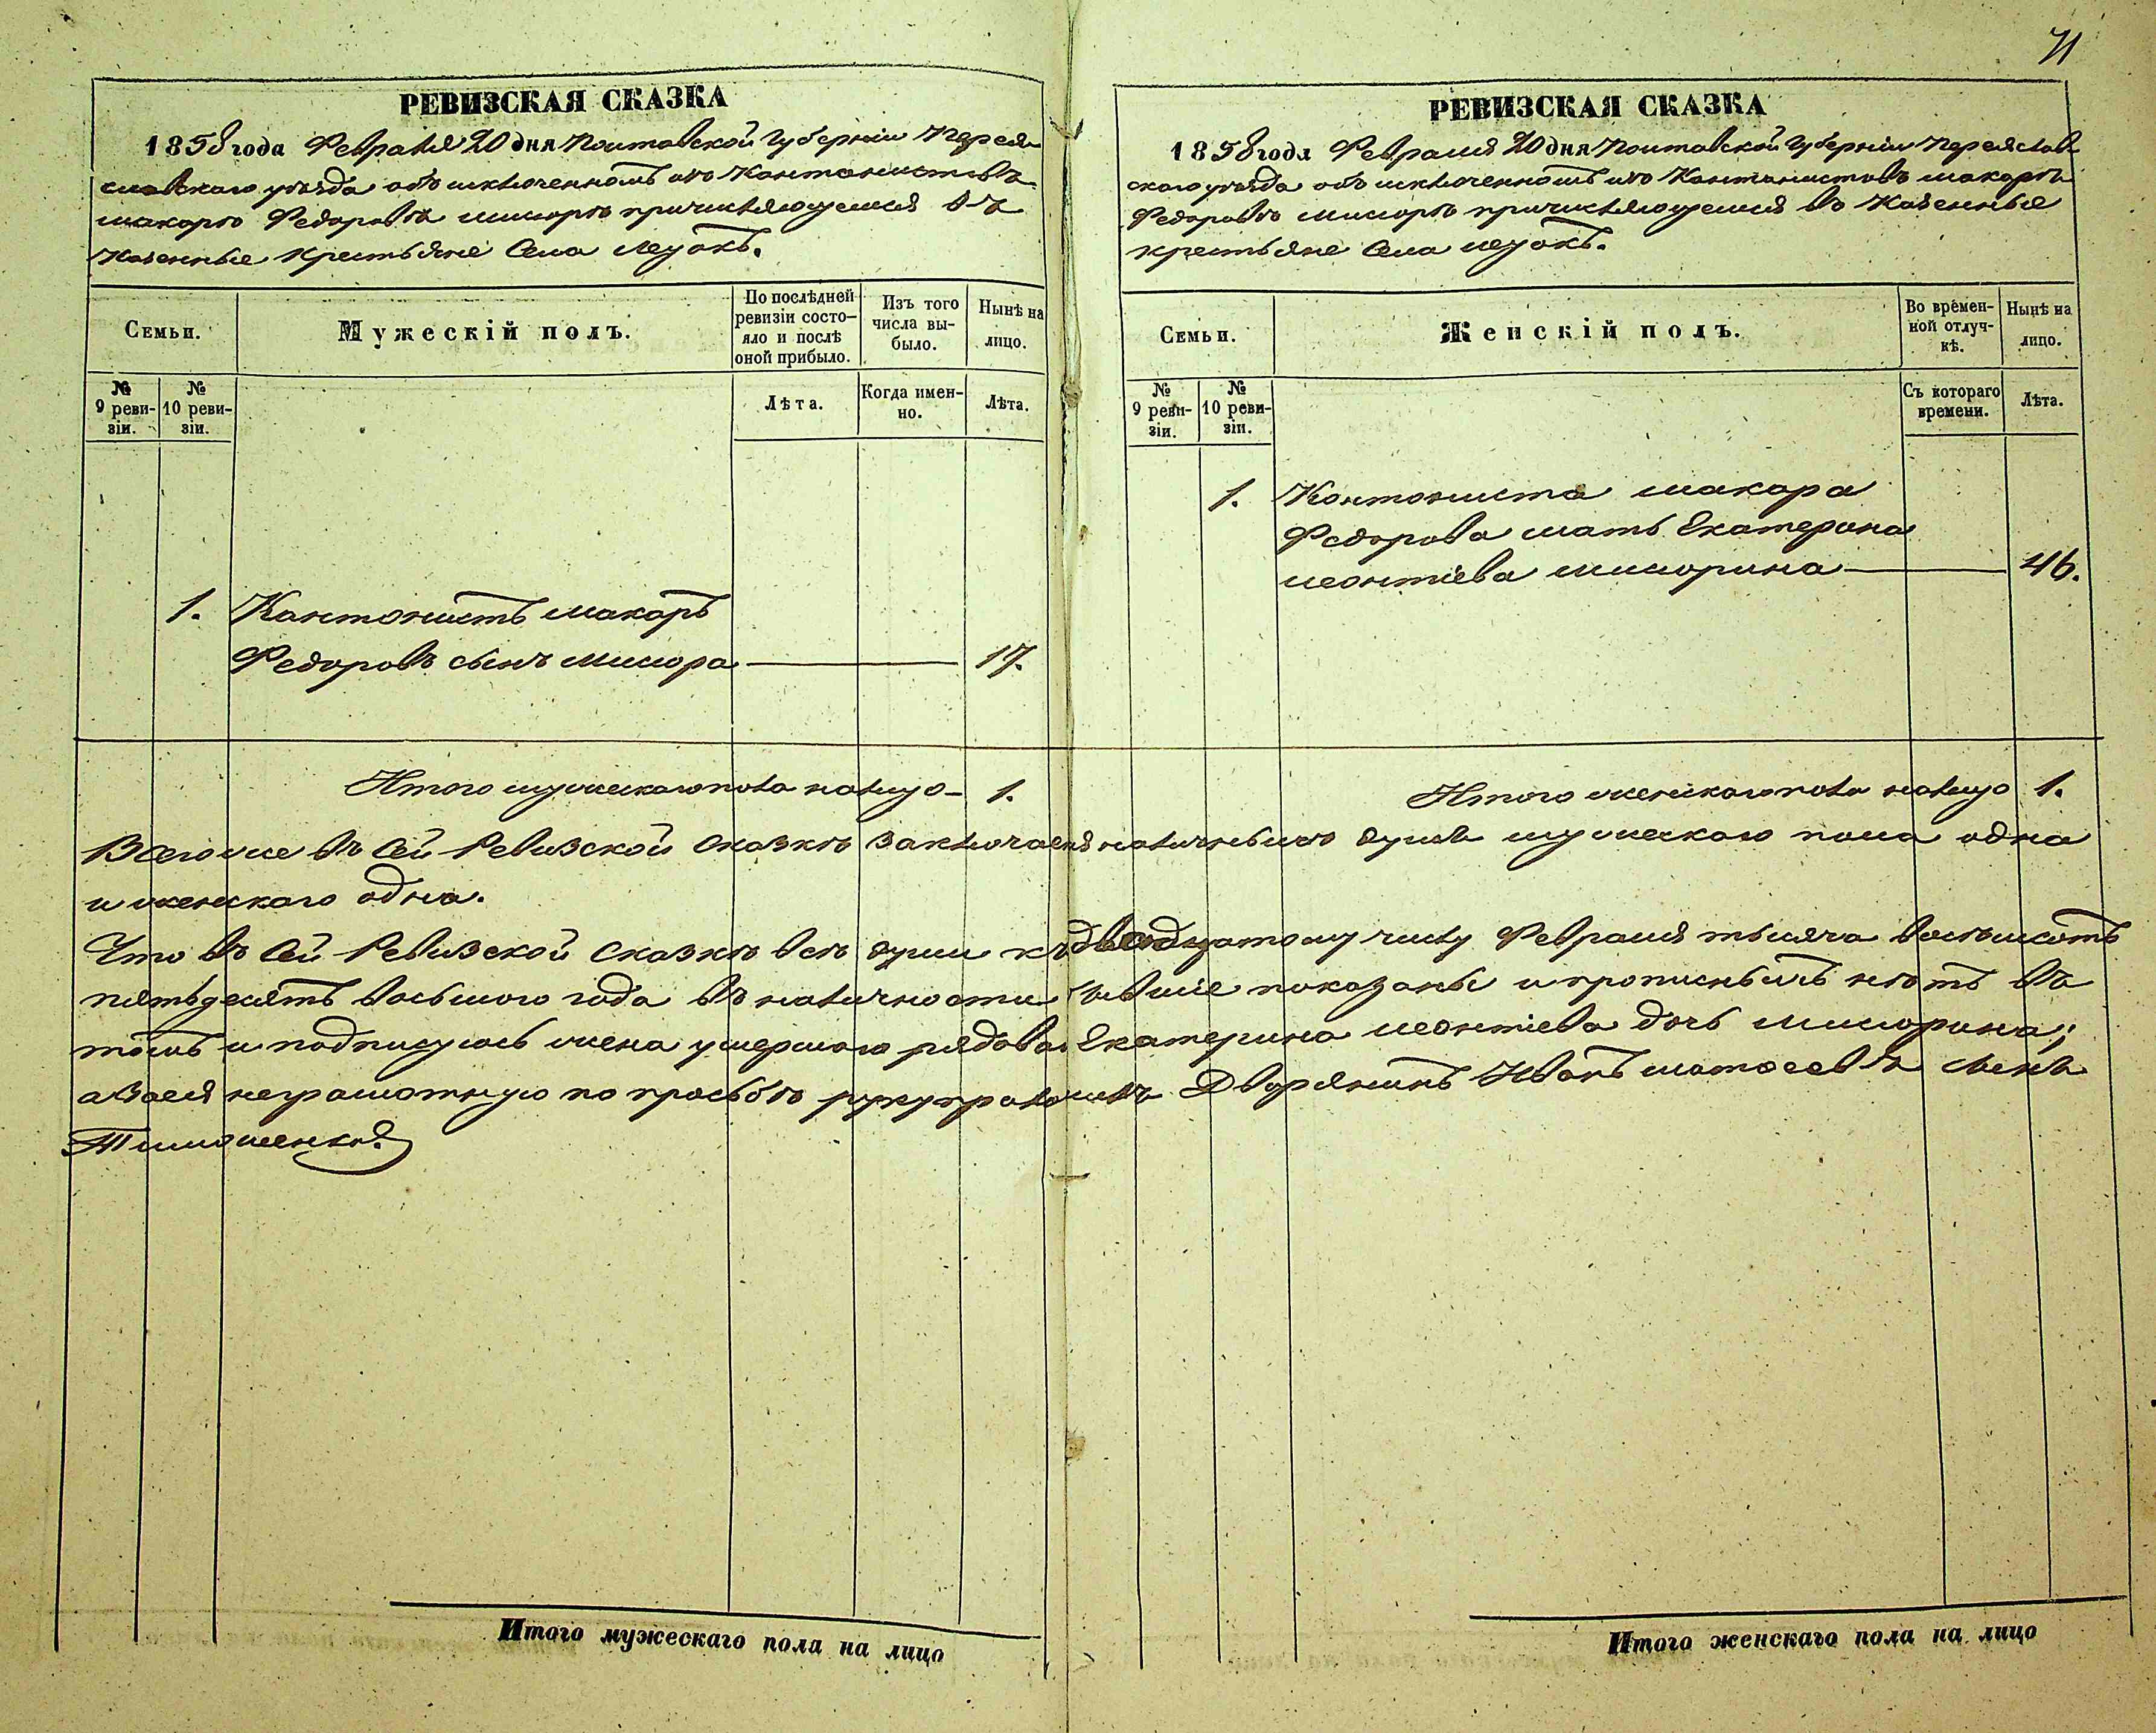 71
РЕВИЗСКАЯ СКАЗКА
1858 года Февраля 20 дня Полтавской Губерніи Перея-
славскаго уѣзда объ исключенномъ изъ Кантонистовъ
Макарѣ Федоровѣ Мисюрѣ причисляющемся въ
Казенные Крестьяне Села Лецокъ.
Семьи.
Мужескій полъ.
По послѣдней ревизіи состо-
яло и послѣ оной прибыло.
Изъ того числа вы-
было.
Нынѣ на лицо.
№ 9 реви-
зіи.
№ 10 реви-
зіи.
Лѣта.
Когда имен-
но.
Лѣта.
1. Кантонистъ Макаръ
Федоровъ сынъ Мисюра 17.
Итого мужескаго пола налицо 1.
РЕВИЗСКАЯ СКАЗКА
1858 года Февраля 20 дня Полтавской Губерніи Переяслав-
скаго уѣзда объ исключенномъ изъ Кантонистовъ Макарѣ
Федоровѣ Мисюрѣ причисляющемся въ Казенные
Крестьяне Села Лецокъ.
Семьи.
Женскій полъ.
Во времен-
ной отлуч-
кѣ.
Нынѣ на лицо.
№ 9 реви-
зіи.
№ 10 реви-
зіи.
Съ котораго времени.
Лѣта.
1. Кантониста Макара
Федорова мать Екатерина
Леонтіева Мисюрина 46.
Итого женскаго пола налицо 1.
Всего же въ сей Ревизской сказкѣ заключается наличныхъ душъ мужескаго пола одна
и женскаго одна.
Что въ сей Ревизской сказкѣ всѣ души къ двадцатому числу Февраля тысяча восемьсотъ
пятьдесятъ восьмого года въ наличности бывшіе показаны и прописныхъ нѣтъ въ
томъ и подписуюсь жена умершаго рядова Екатерина Леонтіева дочь Мисюрина;
а за ея неграмотную по просьбѣ рукуприложилъ Дворянинъ Иванъ Матфеевъ сынъ
Тимошенко
Итого мужескаго пола на лицо
Итого женскаго пола на лицо